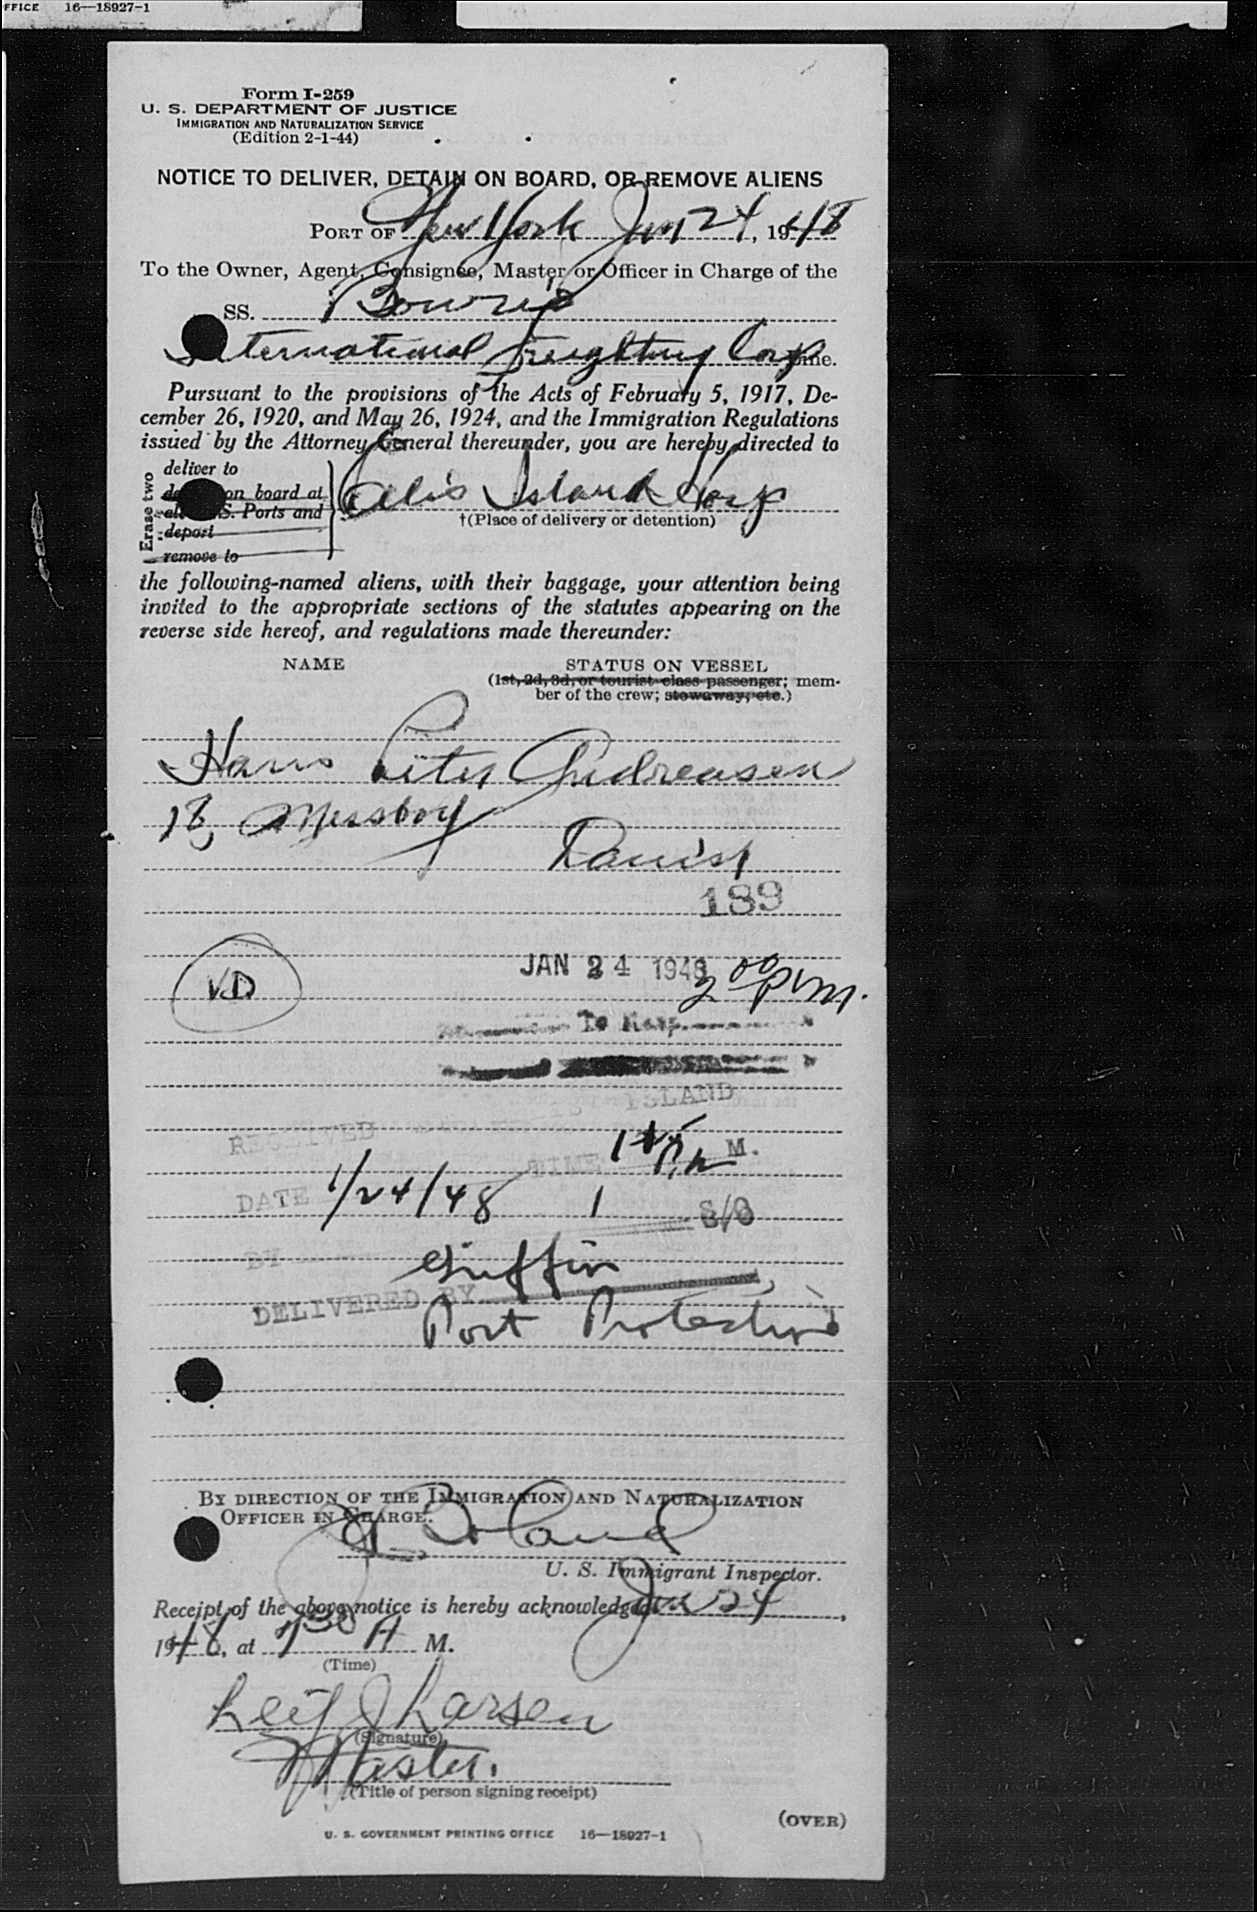 FFICE 16—18927-1
Form I-259
U. S. DEPARTMENT OF JUSTICE
IMMIGRATION AND NATURALIZATION SERVICE
(Edition 2-1-44)
NOTICE TO DELIVER, DETAIN ON BOARD, OR REMOVE ALIENS
PORT OF New York Jan 24, 1948
To the Owner, Agent, Consignee, Master or Officer in Charge of the
SS.
International Freighting Corp ine.
Pursuant to the provisions of the Acts of February 5, 1917, De-
cember 26, 1920, and May 26, 1924, and the Immigration Regulations
issued by the Attorney General thereunder, you are hereby directed to
Erase two
deliver to
on board at
S. Ports and
deport
remove to
Ellis Island Hosp
†(Place of delivery or detention)
the following-named aliens, with their baggage, your attention being
invited to the appropriate sections of the statutes appearing on the
reverse side hereof, and regulations made thereunder:
NAME STATUS ON VESSEL
(1st, 2d, 3d, or tourist class passenger; mem-
ber of the crew; stowaway, etc.)
Hans Peter Andreasen
18, Messboy
Danish
189
JAN 24 1948 2 00 P.M.
VD
To Hosp.
ISLAND
RECEIVED
TIME M.
DATE 1/24/48 1 S/O
BY Griffin
DELIVERED BY
Port Protection
BY DIRECTION OF THE IMMIGRATION AND NATURALIZATION
OFFICER IN CHARGE.
Boland
U. S. Immigrant Inspector.
Receipt of the above notice is hereby acknowledged Jan 24,
1948, at 7 30 A M.
(Time)
Leif J Larsen
(Signature)
Master.
(Title of person signing receipt)
(OVER)
U. S. GOVERNMENT PRINTING OFFICE 16—18927-1